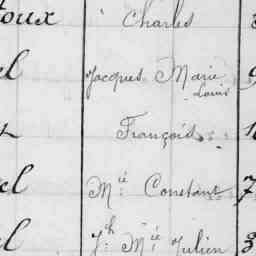 toux Charles
el Jacques Marie
Louis
François
el M.ie Constant 7
el J.h M.ie Julien 3